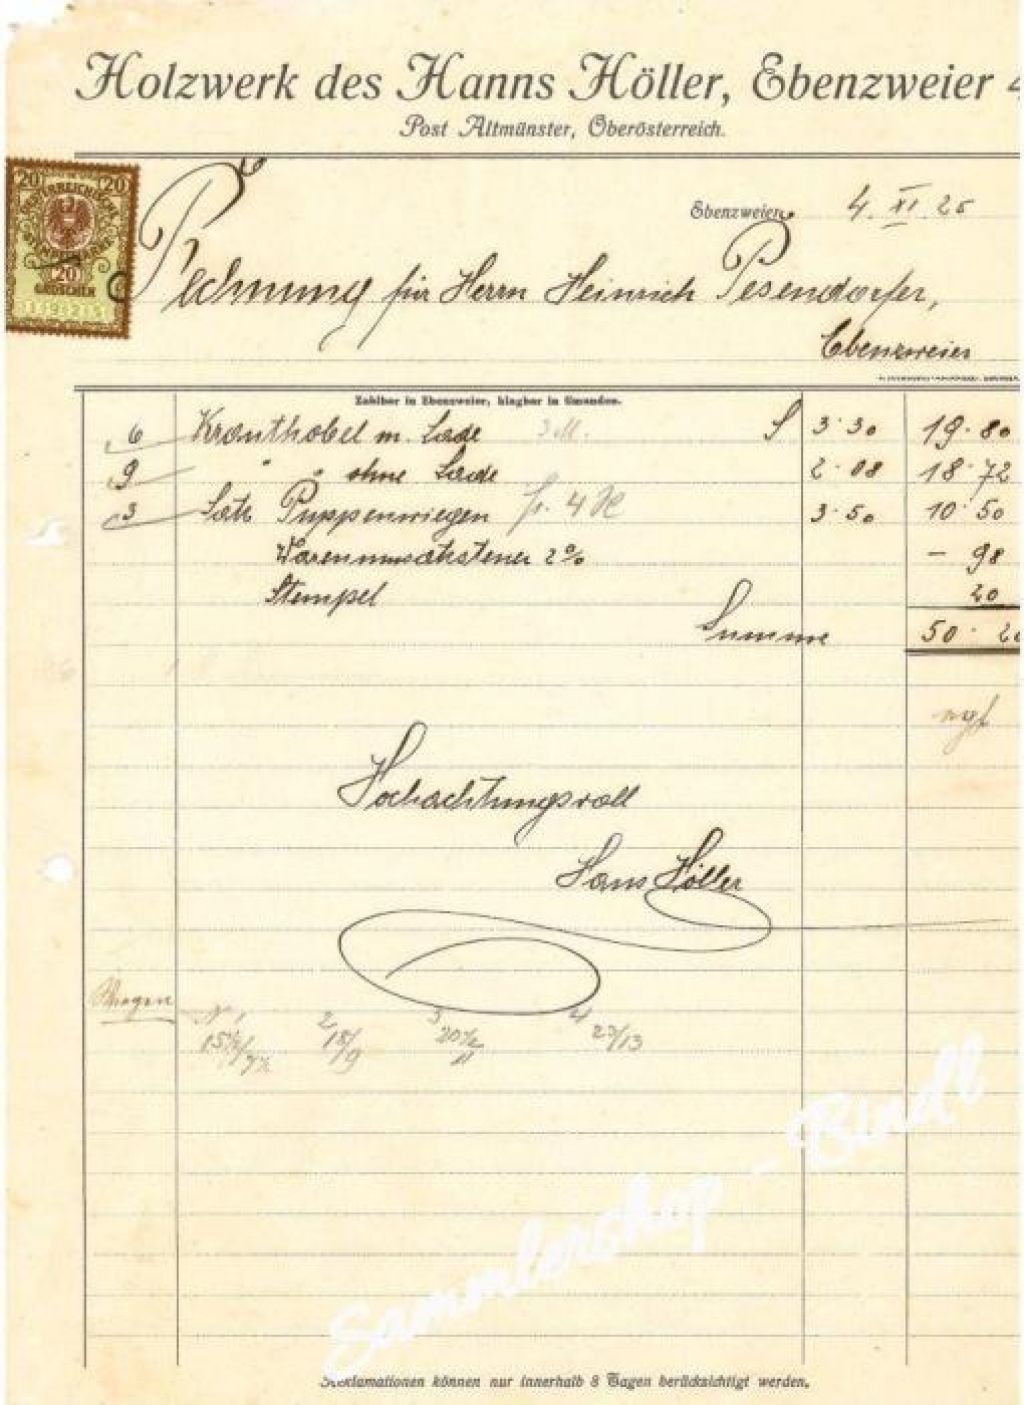 Holzwerk des Hanns Höller, Ebenzweier 4
Post Altmünster, Oberösterreich.
20 20
20
GROSCHEN
Ebenzweier, 4. XI. 25
Rechnung für Herrn Heinrich Pesendorfer,
Ebenzweier
Zahlbar in Ebenzweier, klagbar in Gmunden.
6 Krauthobel m. Lade 3 M. S 3·30 19·80
9 " " ohne Lade 2·08 18·72
3 Satz Puppenwiegen 4 3·50 10·50
Warenumsatzsteuer 2% – 98
Stempel 20
Summe 50·20
Hochachtungsvoll
Hans Höller
Wiegen
N 1 2 3 4
15½/7½ 18/9 20½/11 23/13
Sammlershop - Bindl
Reklamationen können nur innerhalb 8 Tagen berücksichtigt werden.